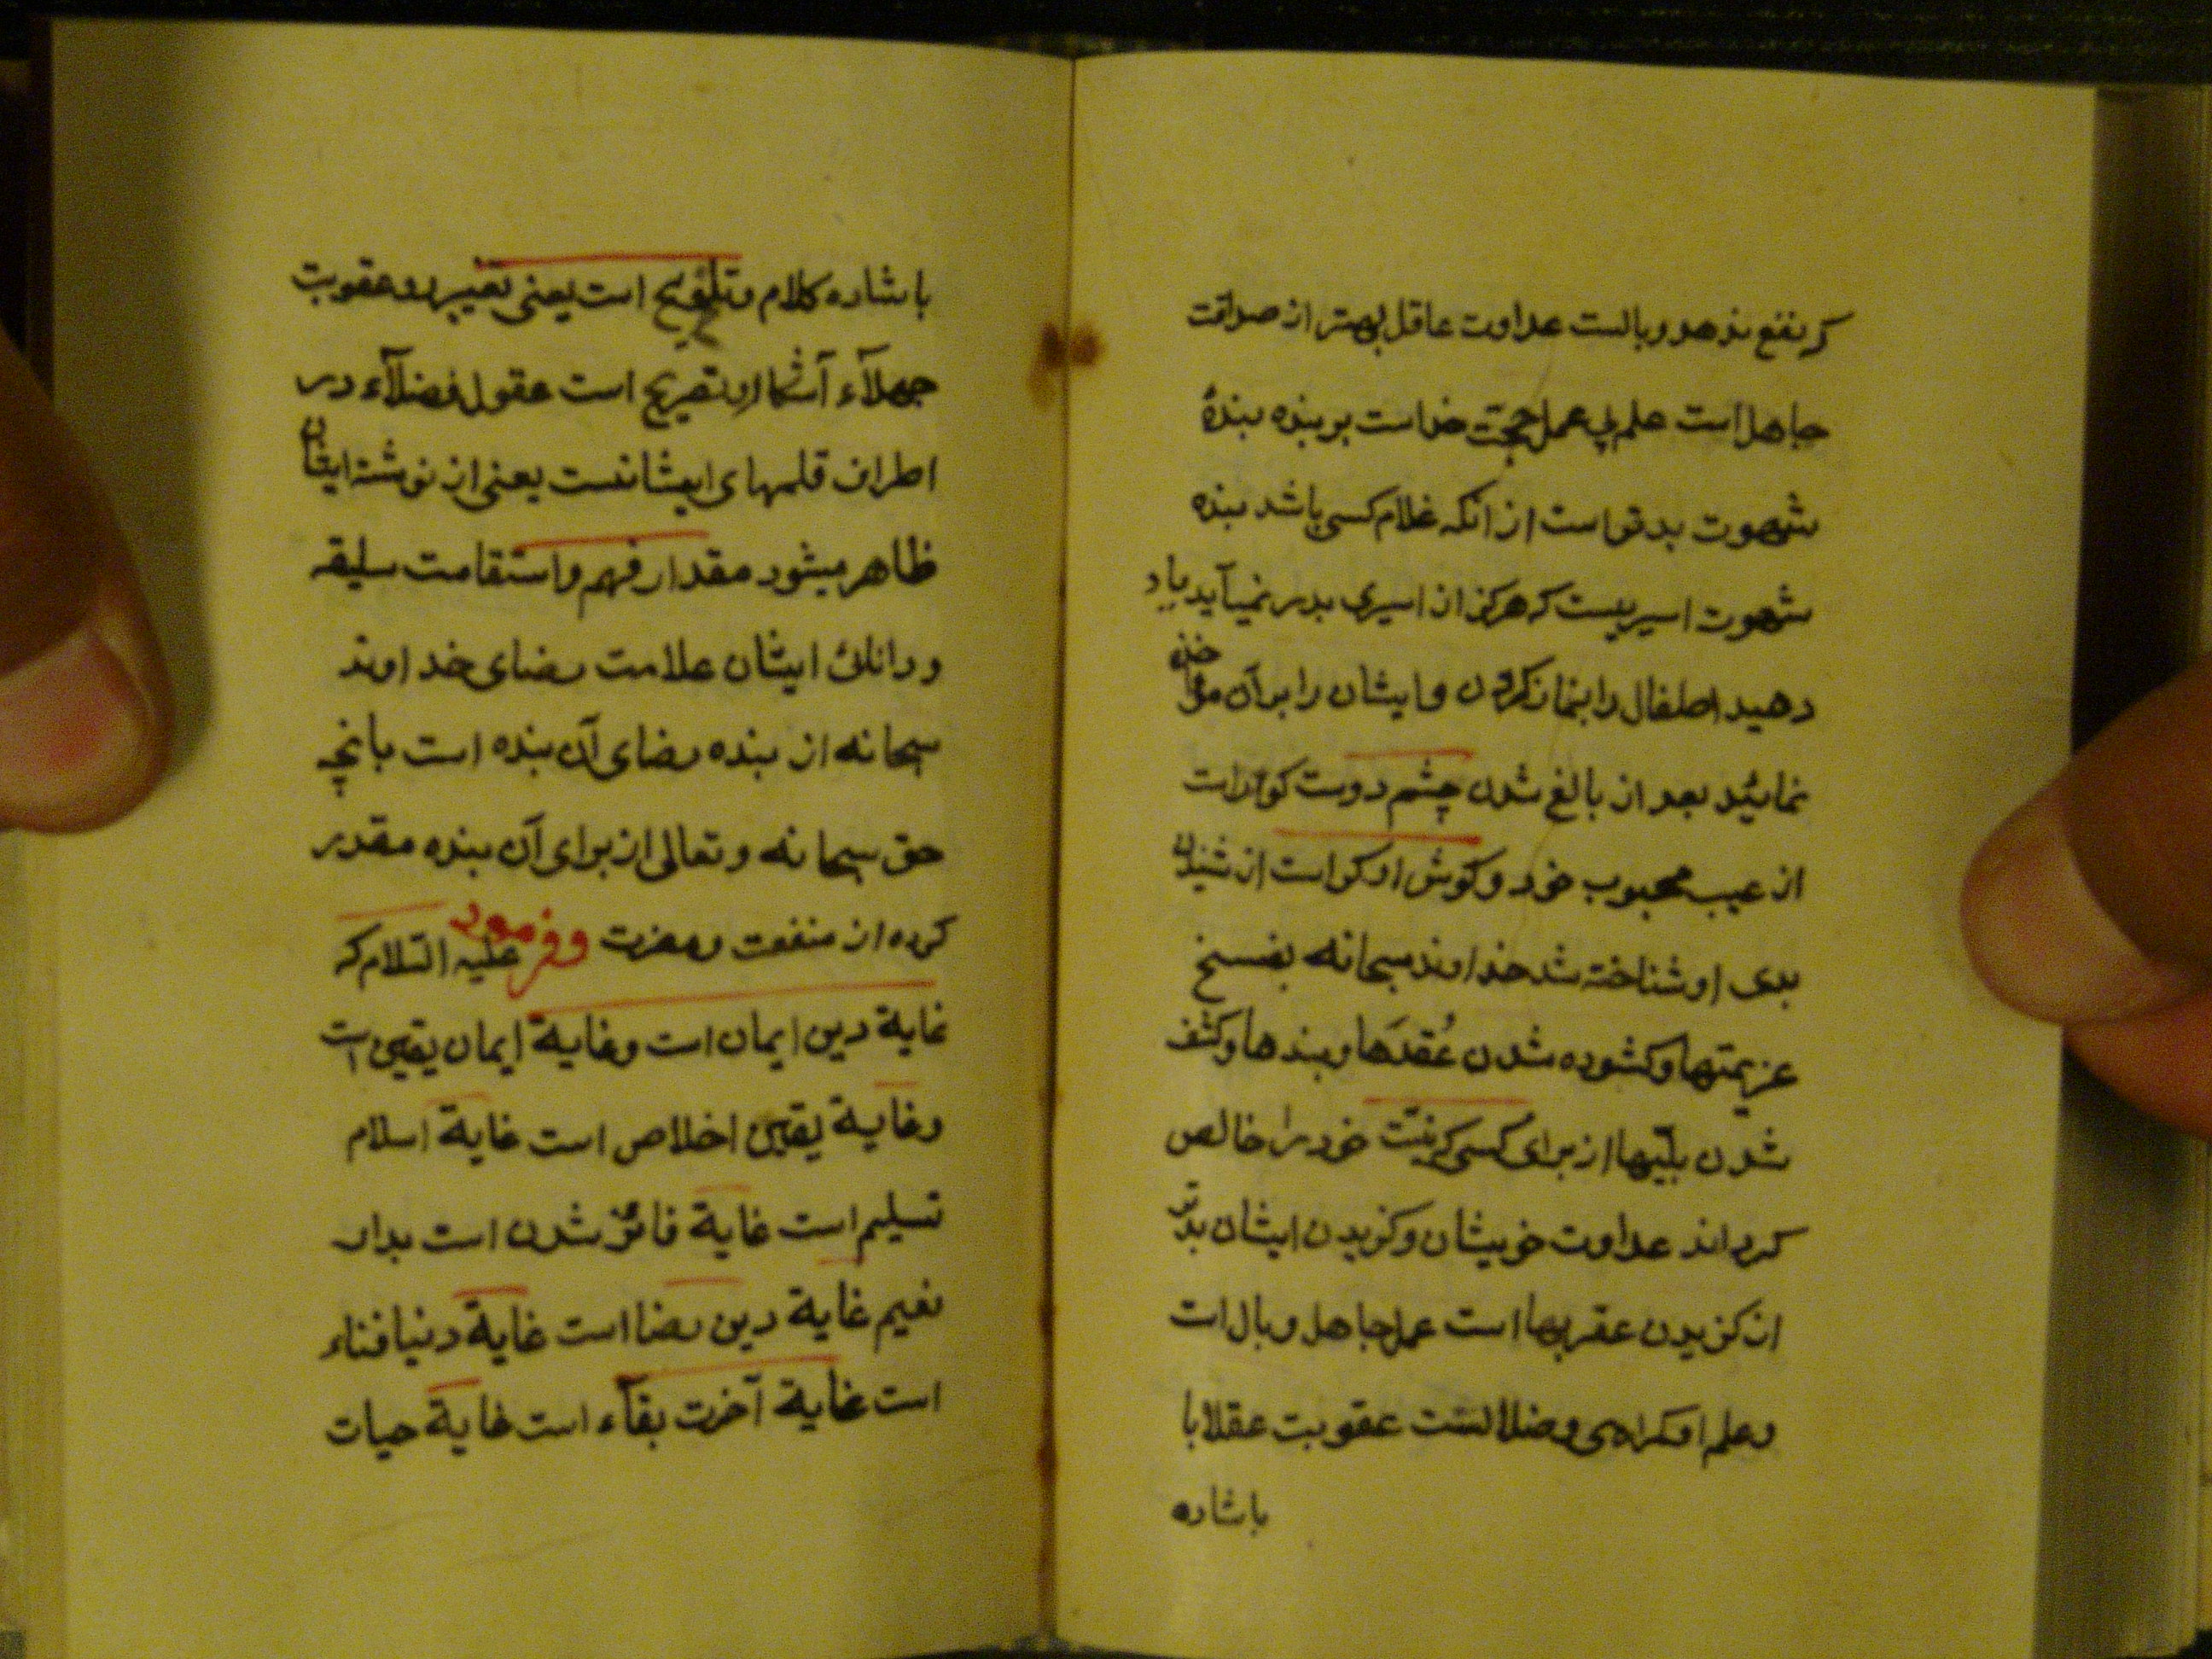 که نفع ندهد وبالست عداوت عاقل بهتر از صداقت
جاهل است علم بی عمل حجت خداست بر بنده بندهٔ
شهوت بدتر است از آنکه غلام کسی باشد بنده
شهوت اسیریست که هرکز از اسیری بدر نمیآید یاد
دهید اطفال را بنماز کردن و ایشان را بر آن مؤاخذه
نمائید بعد از بالغ شدن چشم دوست کور است
از عیب محبوب خود و کوش او کر است از شنیدن
بدی او شناخته شد خداوند سبحانه بفسخ
عزیمتها و کشوده شدن عُقدَها و بندها و کشف
شدن بلّیها از برای کسی که نیّت خود را خالص
کرداند عداوت خویشان و کزیدن ایشان بدتر
از کزیدن عقربها است عمل جاهل وبال است
و علم او کمراهی و ضلالتست عقوبت عقلا با
باشاره
باشاره کلام و تلویح است یعنی تعبیر و عقوبت
جهلآء آشکار و تصریح است عقول فضلآء در
اطراف قلمهای ایشانست یعنی از نوشتهٔ ایشان
ظاهر میشود مقدار فهم و استقامت سلیقه
و دانک ایشان علامت رضای خداوند
سبحانه از بنده رضای آن بنده است بانچه
حق سبحانه و تعالی از برای آن بنده مقدر
کرده از منفعت و مضرت و فرمود علیه السّلام که
غایة دین ایمان است و غایة ایمان یقین است
و غایة یقین اخلاص است غایة اسلام
تسلیم است غایة فائز شدن است بدار
نعیم غایة دین رضا است غایة دنیا فناء
است غایة آخرت بقآء است غایة حیات